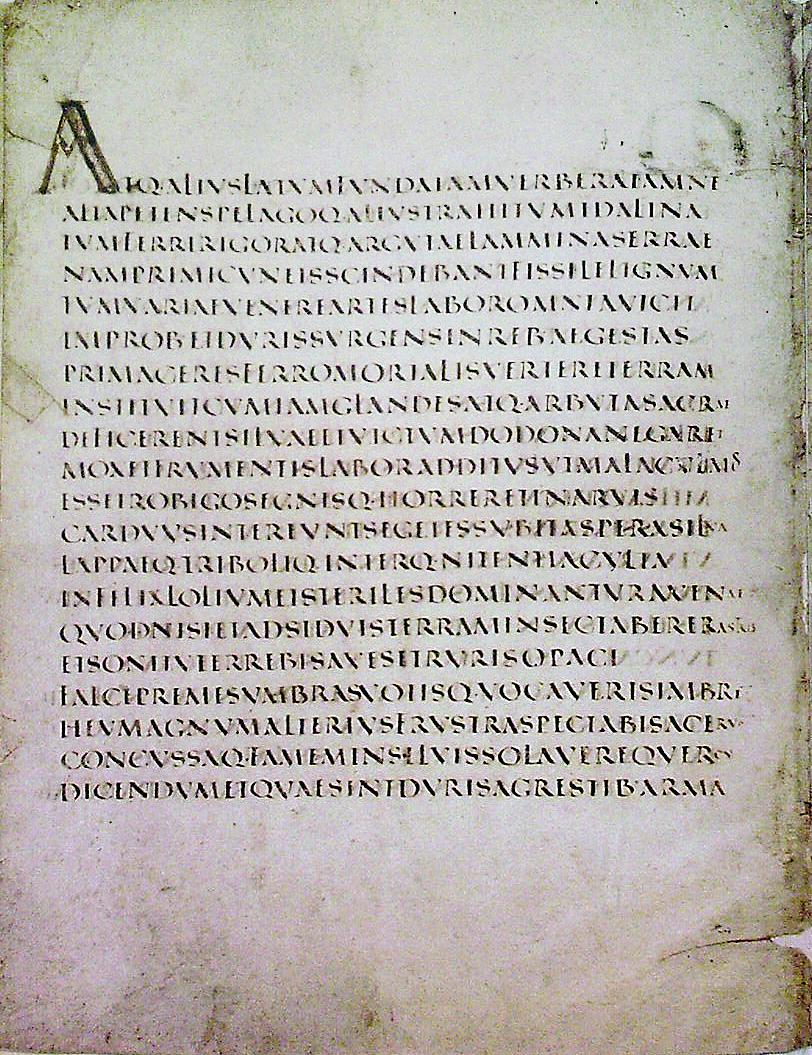 ATQALIVSLATVMFVNDAIAMVERBERATAMNE
ALTAPETENSPELAGOQALIVSTRAHITVMIDALINA
TVMFERRIRIGORATQARGVTAELAMMINASERRAE
NAMPRIMICVNEISSCINDEBANTFISSILELIGNVM
TVMVARIAEVENEREARTESLABOROMNIAVICIT
IMPROBETDVRISSVRGENSINREBAEGESTAS
PRIMACERESFERROMORTALISVERTERETERRAM
INSTITVITCVMIAMGLANDESATQARBVTASACRAE
DEFICERENTSILVAEETVICTVMDODONANEGARET
MOXETFRVMENTISLABORADDITVSVTMALACVLMOS
ESSETROBIGOSEGNISQ·HORRERETINARVIS
CARDVVSINTEREVNTSEGETESSVBITASPERASILVA
LAPPAEQTRIBOLIQ·INTERQNITENTIACVLTA
INFELIXLOLIVMETSTERILESDOMINANTVRAVENAE
QVODNISIETADSIDVISTERRAMINSECTABERERASTRIS
ETSONITVTERREBISAVESETRVRISOPACI
FALCEPREMESVMBRASVOTISQ·VOCAVERISIMBRE
HEVMAGNVMALTERIVSFRVSTRASPECTABISACERVO
CONCVSSAQ·FAMEMINSILVISSOLAVEREQVERCV
DICENDVMETQVAESINTDVRISAGRESTIBARMA